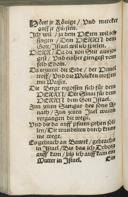 Höret jr Könige / Vnd mercket
auff jr Fürsten
Ich wil / ja dem HErrn wil ich
singen / Dem HERRN dem
Gott Israel wil ich spielen.
HERR / Da du von Seir auszogest /
Vnd einher giengest vom
felde Edom /
Da die Erde / der Himel
troff / Vnd die Wolcken troffen
mit Wasser.
Die Berge ergossen sich für dem
HERRN / Der Sinai für dem
HERRN dem Gott Israel.
Zun zeiten Samgar des sons
Anath / Zun zeiten Jael waren
vergangen die wege /
Vnd die da auff pfaden gehen
solten / Die wandelten durch krumme
wege.
gebrach an Bawrn / gebrach
in Israel / Bis das ich Debora
auff kam / bis ich auff kam ein
Mutter in Israel.